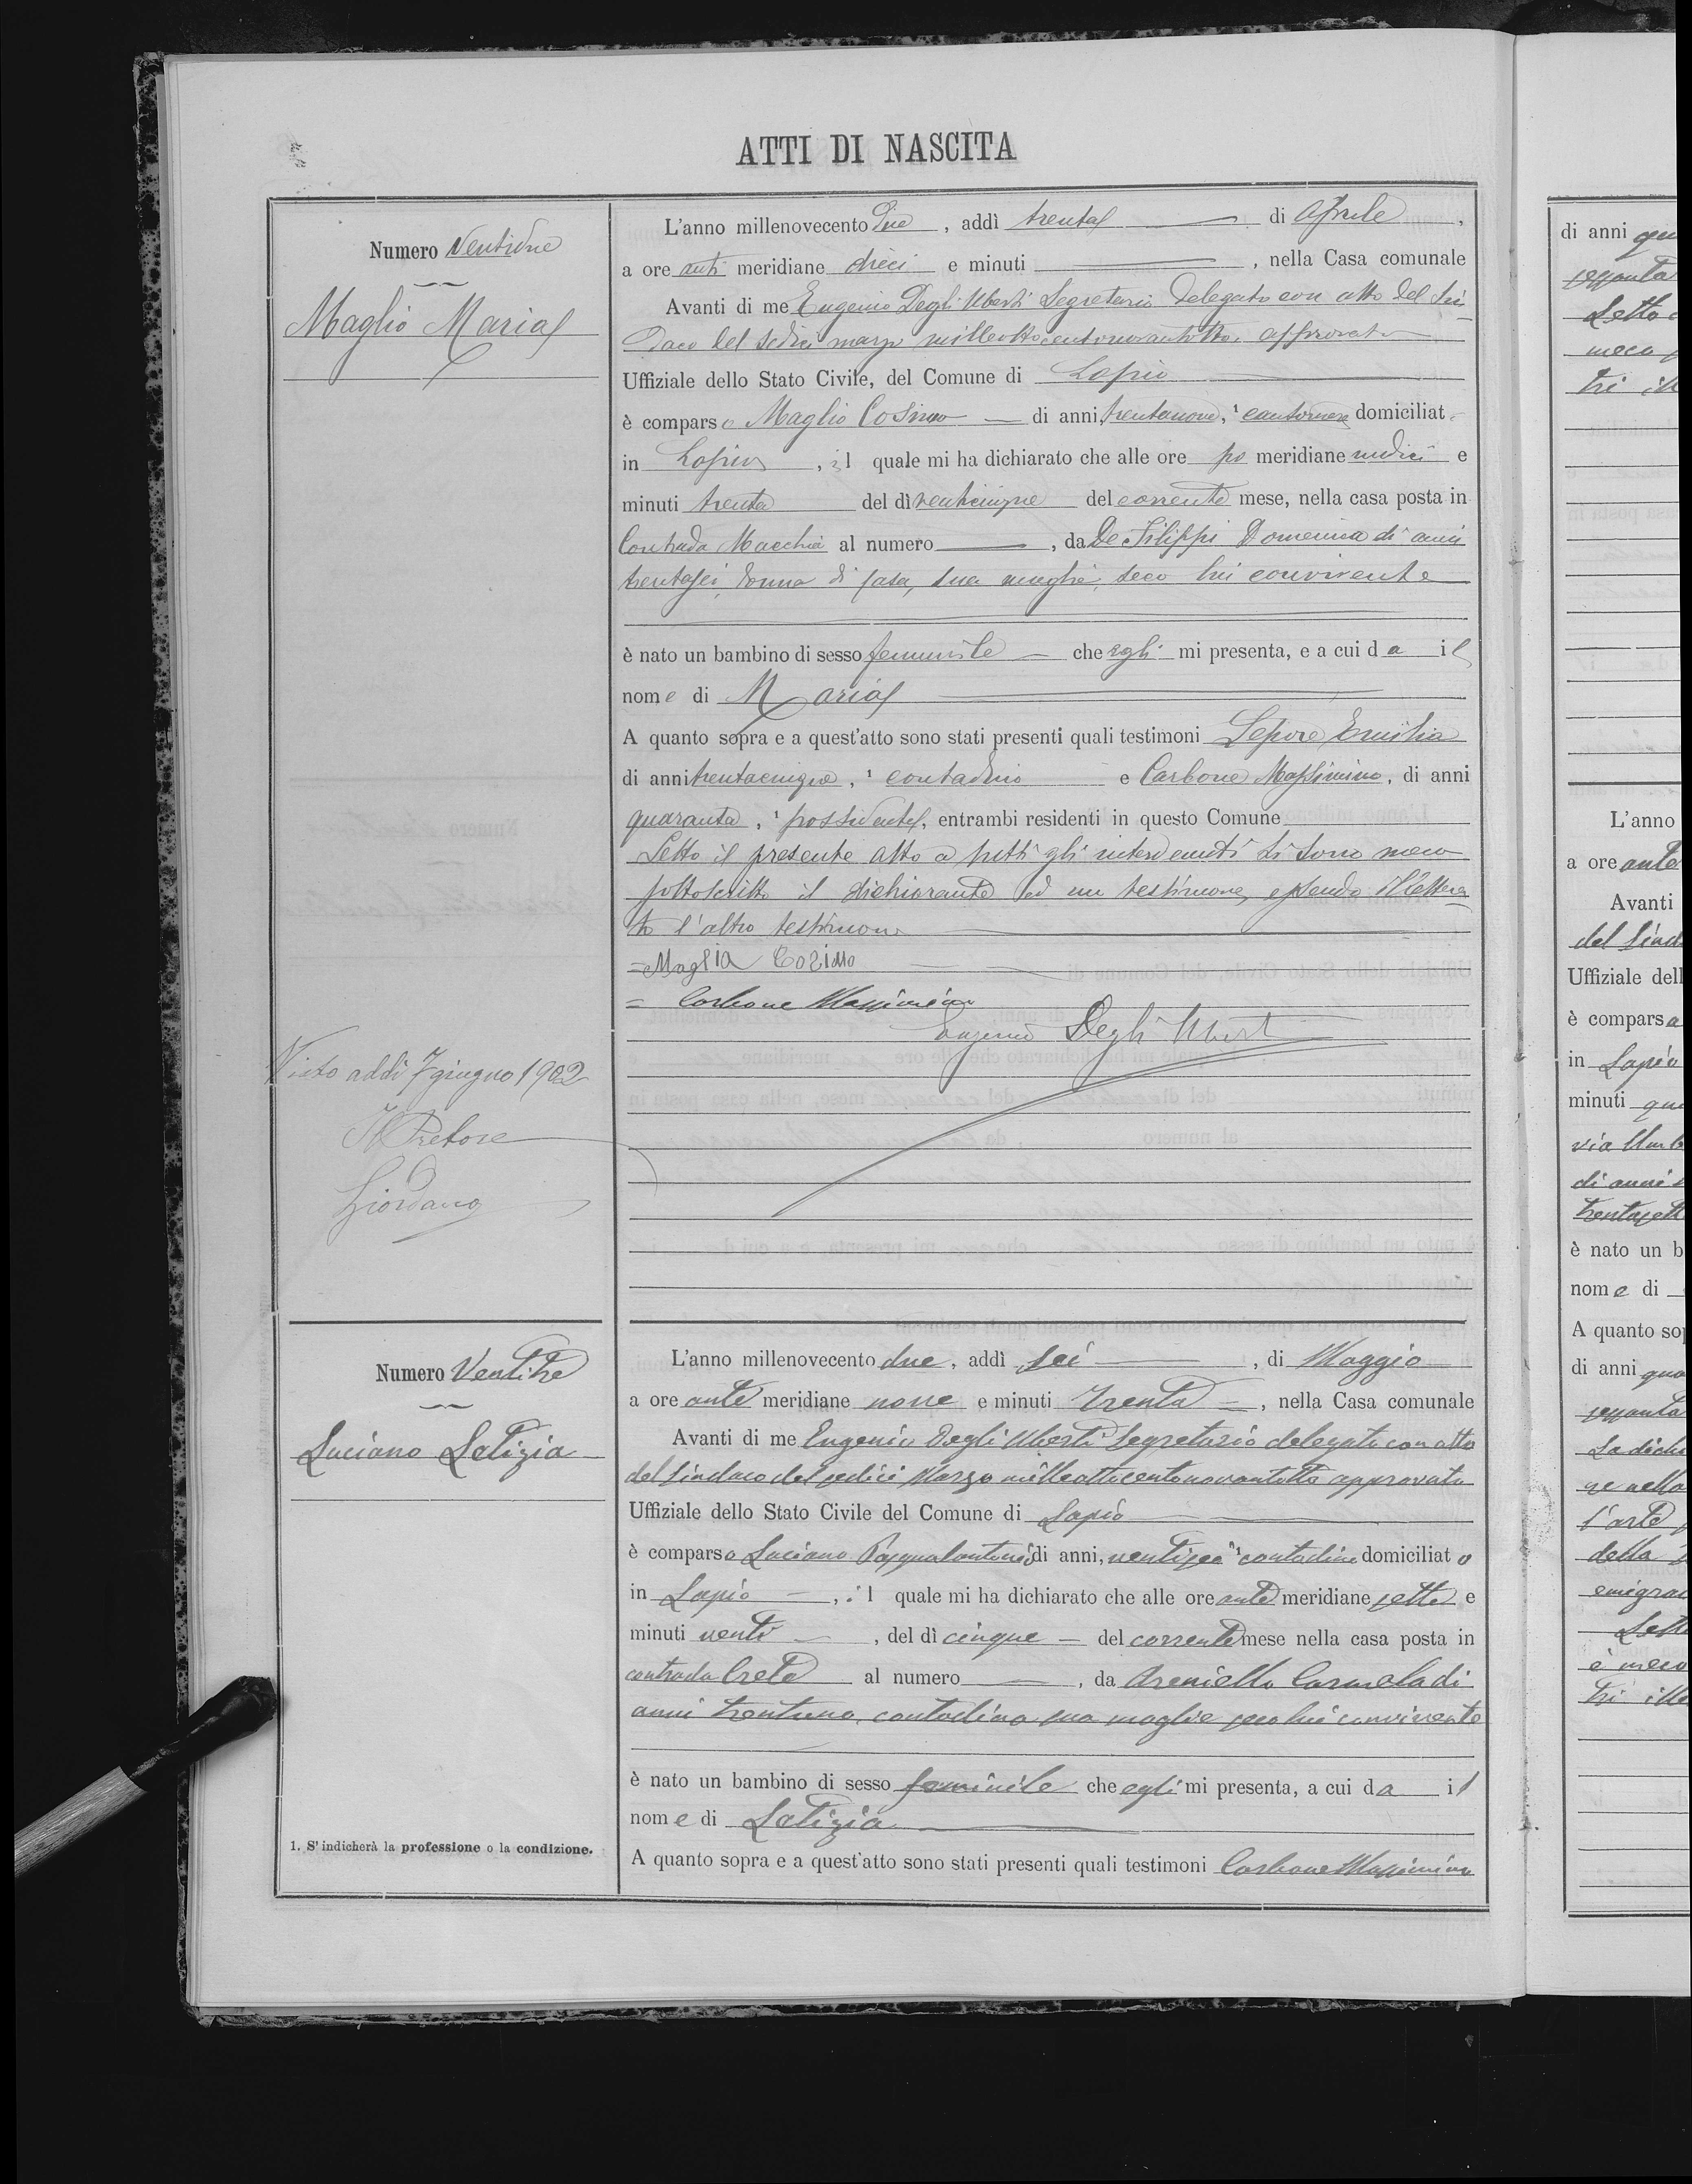 ATTI DI NASCITA
Numero Ventidue
Maglio Maria
L'anno millenovecento due, addì trenta di Aprile,
a ore anti meridiane dieci e minuti, nella Casa comunale
Avanti di me Eugenio Degli Uberti Segretario delegato con atto del Sin-
daco del sedici marzo milleottocentonovantotto, approvato
Uffiziale dello Stato Civile, del Comune di Lapio
è comparso Maglio Cosimo di anni, trentanove, ¹ cantoniere domiciliato
in Lapio, il quale mi ha dichiarato che alle ore po meridiane undici e
minuti trenta del dì venticinque del corrente mese, nella casa posta in
Contrada Macchia al numero, da De Filippi Domenica di anni
trentasei, donna di casa, sua moglie, seco lui convivente
è nato un bambino di sesso femminile che egli mi presenta, e a cui da il
nome di Maria
A quanto sopra e a quest'atto sono stati presenti quali testimoni Lepore Emilio
di anni trentacinque, ¹ contadino e Carbone Massimino, di anni
quaranta, ¹ possidente, entrambi residenti in questo Comune
Letto il presente atto a tutti gli intervenuti si sono meco
sottoscritti il dichiarante ed un testimone, essendo illettera-
to l'altro testimone
= Maglia Cosimo
= Carbone Massimino
Eugenio Degli Uberti
Visto addì 7 giugno 1902
Il Pretore
Giordano
Numero Ventitre
Luciano Letizia
L'anno millenovecento due, addì sei, di Maggio
a ore ante meridiane nove e minuti trenta, nella Casa comunale
Avanti di me Eugenio Degli Uberti Segretario delegato con atto
del Sindaco del sedici Marzo milleottocentonovantotto approvato
Uffiziale dello Stato Civile del Comune di Lapio
è comparso Luciano Pasqualantonio di anni, ventisei ¹ contadino domiciliato
in Lapio, il quale mi ha dichiarato che alle ore ante meridiane sette e
minuti venti, del dì cinque del corrente mese nella casa posta in
contrada Crete al numero, da Areniello Carmela di
anni trentuno, contadina sua moglie seco lui convivente
è nato un bambino di sesso femminile che egli mi presenta, a cui da il
nome di Letizia
A quanto sopra e a quest'atto sono stati presenti quali testimoni Carbone Massimino
1. S'indicherà la professione o la condizione.
di anni
Letto
meco
tri
L'anno
a ore ante
Avanti
del Sind
Uffiziale dell
è comparsa
in Lapio
minuti
via Umb
di anni
trentasett
è nato un b
nome di
A quanto so
di anni qua
La dich
l'arte
della
emigra
Lett
è meco
tri ille